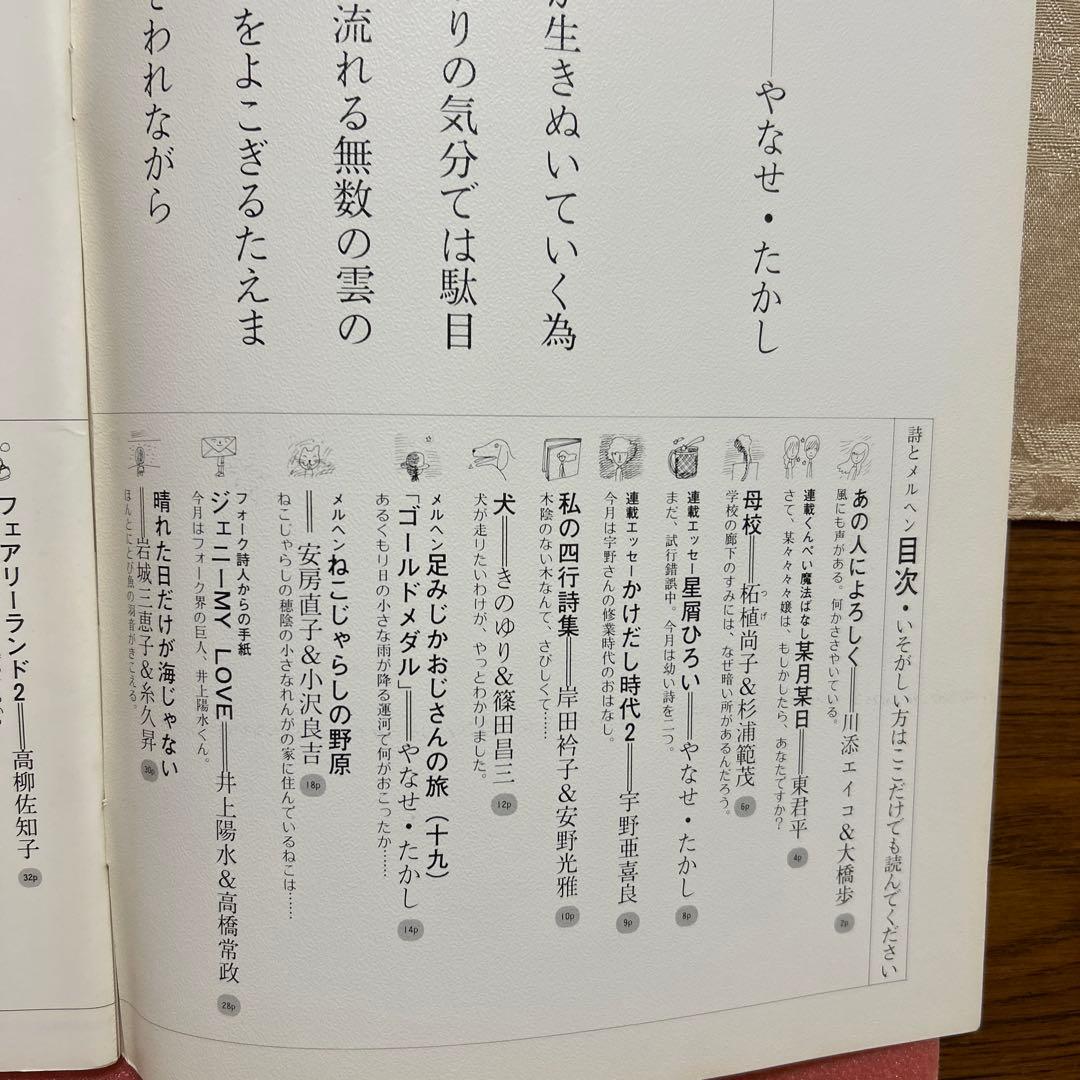 やなせ・たかし
生きぬいていく為
りの気分では駄目
流れる無数の雲の
をよこぎるたえま
われながら
詩とメルヘン 目次・いそがしい方はここだけでも読んでください
あの人によろしく——川添エイコ&大橋歩 2p
風にも声がある。何かささやいている。
連載くんぺい魔法ばなし 某月某日——東君平 4p
さて、某々々々嬢は、もしかしたら、あなたですか?
母校——柘植尚子&杉浦範茂 6p
つげ
学校の廊下のすみには、なぜ暗い所があるんだろう。
連載エッセー 星屑ひろい——やなせ・たかし 8p
まだ、試行錯誤中。今月は幼い詩を二つ。
連載エッセー かけだし時代2——宇野亜喜良 9p
今月は宇野さんの修業時代のおはなし。
私の四行詩集——岸田衿子&安野光雅 10p
木陰のない木なんて、さびしくて……
犬——きのゆり&篠田昌三 12p
犬が走りたいわけが、やっとわかりました。
メルヘン 足みじかおじさんの旅(十九)
「ゴールドメダル」——やなせ・たかし 14p
あるくもり日の小さな雨が降る運河で何がおこったか……
メルヘン ねこじゃらしの野原
——安房直子&小沢良吉 18p
ねこじゃらしの穂陰の小さなれんがの家に住んでいるねこは……
フォーク詩人からの手紙
ジェニーMY LOVE——井上陽水&高橋常政 28p
今月はフォーク界の巨人、井上陽水くん。
晴れた日だけが海じゃない
——岩城三恵子&糸久昇 30p
ほんとにとび魚の羽音がきこえる。
フェアリーランド2——高柳佐知子 32p